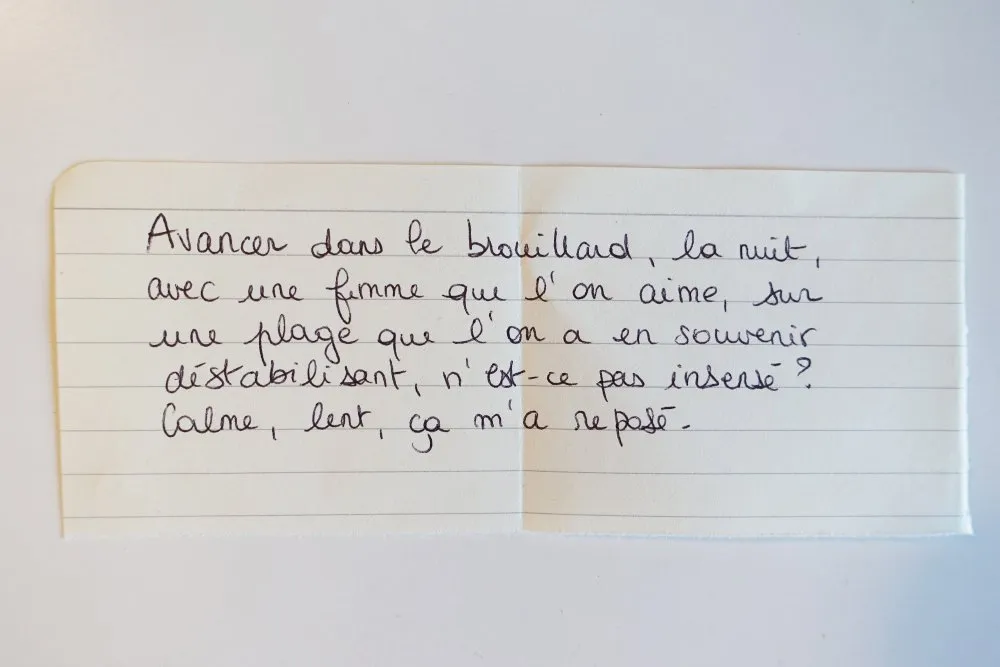 Avancer dans le brouillard, la nuit,
avec une femme que l'on aime, sur
une plage que l'on a en souvenir
déstabilisant, n'est-ce pas insensé ?
Calme, lent, ça m'a reposé.